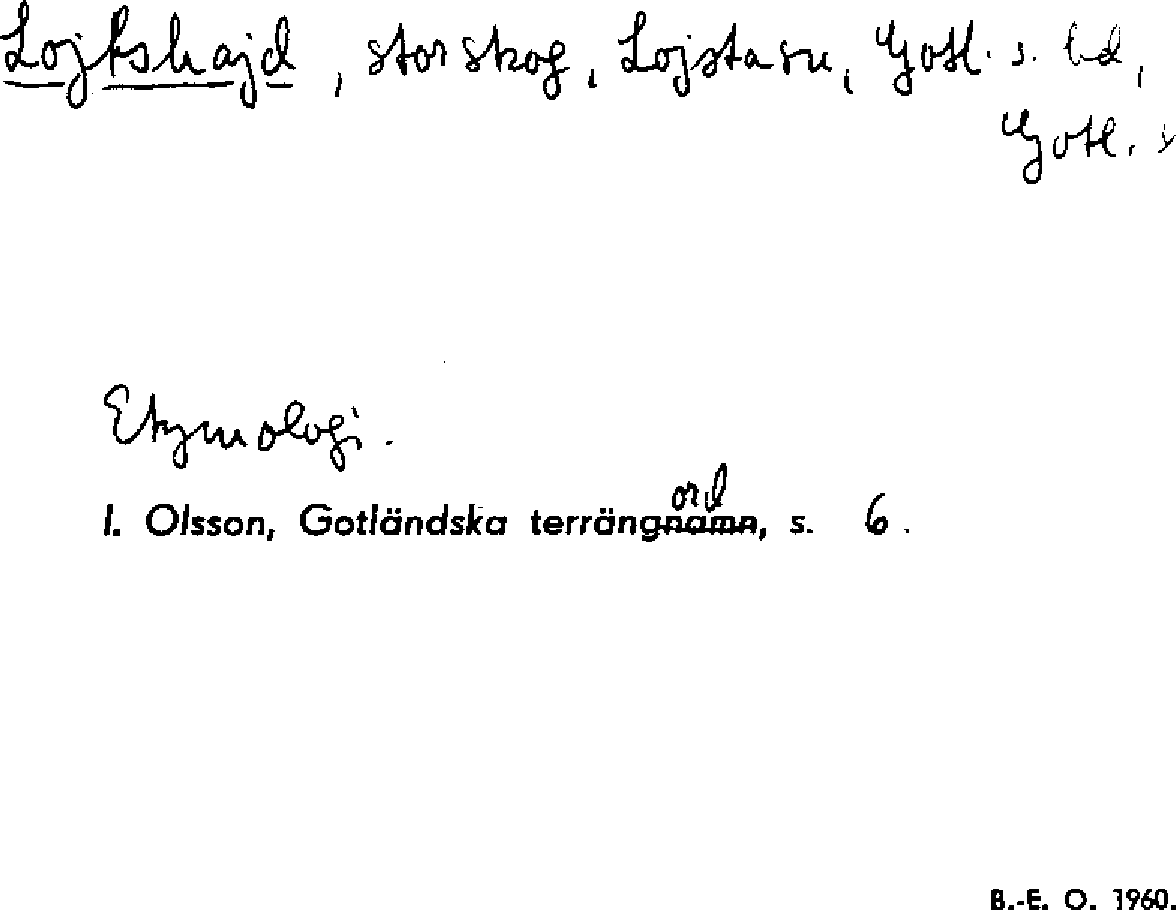 Lojtshajd, storskog, Lojsta sn, Gotl. s. hd,
Gotl.
Etymologi.
ord
I. Olsson, Gotländska terrängnamn, s. 6.
B.-E. O. 1960.